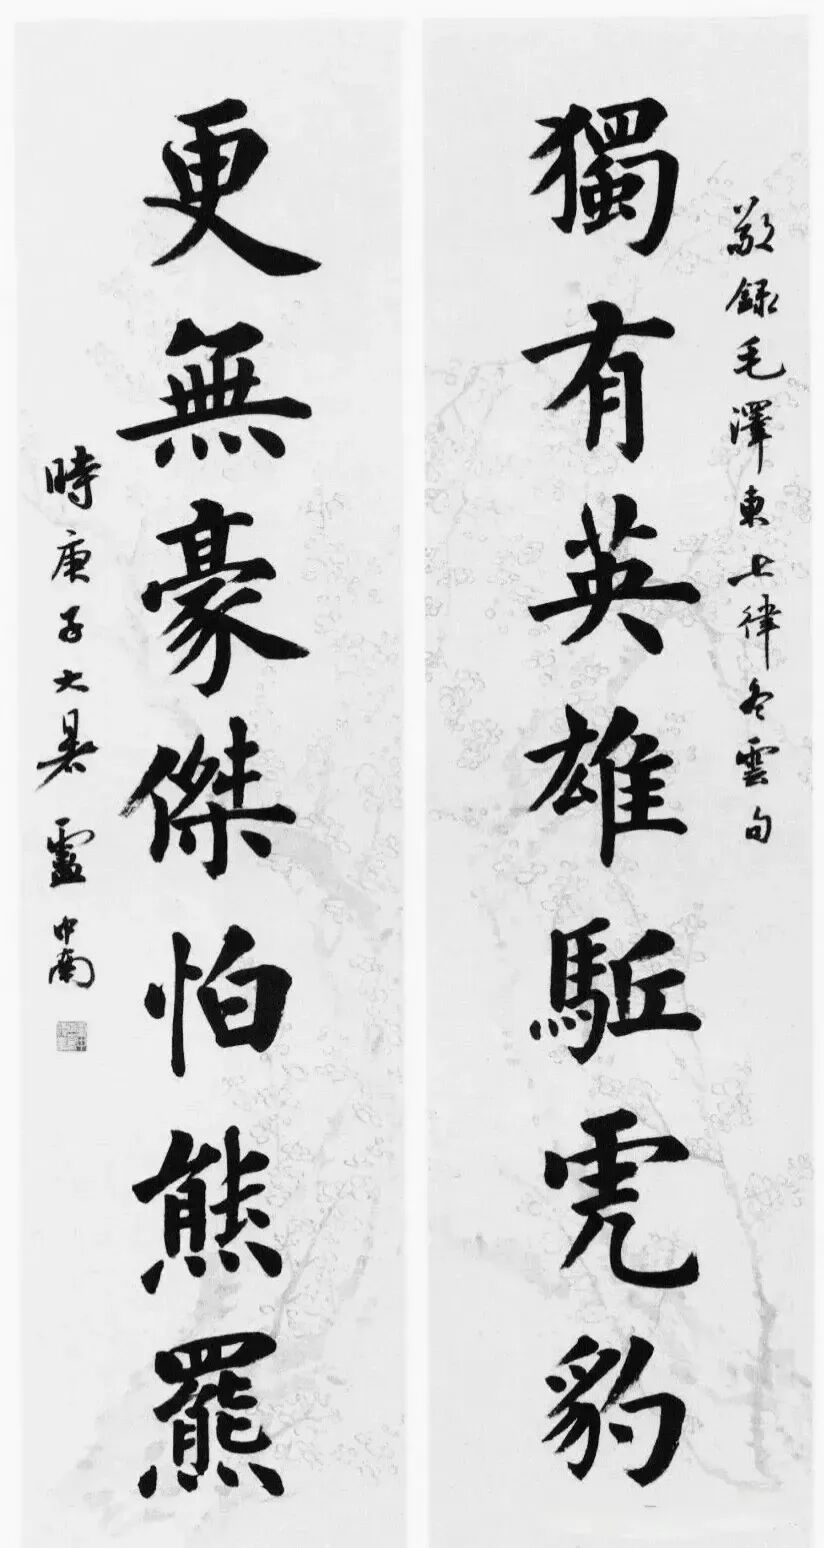 敬錄毛澤東七律冬雲句
獨有英雄駈虎豹
更無豪傑怕熊羆
時庚子大暑盧中南